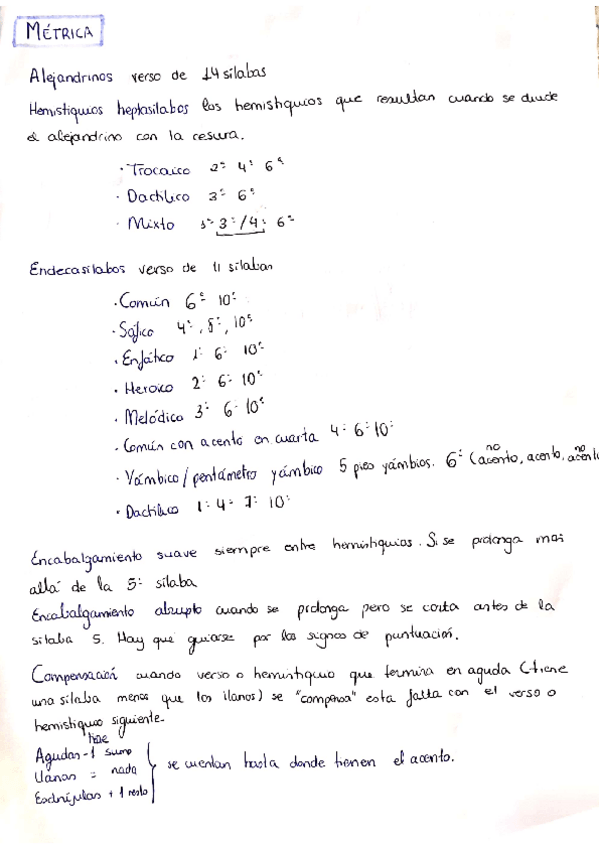 MÉTRICA
Alejandrinos verso de 14 sílabas
Hemistiquios heptasílabos los hemistiquios que resultan cuando se divide
el alejandrino con la cesura.
· Trocaico 2ª 4ª 6ª
· Dactílico 3ª 6ª
· Mixto 1ª 3ª/4ª 6ª
Endecasílabos verso de 11 sílabas
· Común 6ª 10ª
· Sáfico 4ª, 8ª, 10ª
· Enfático 1ª 6ª 10ª
· Heroico 2ª 6ª 10ª
· Melódico 3ª 6ª 10ª
· Común con acento en cuarta 4ª 6ª 10ª
· Yámbico / pentámetro yámbico 5 pies yámbicos. 6ª (no acento, acento, no acento
· Dactílico 1ª 4ª 7ª 10ª
Encabalgamiento suave siempre entre hemistiquios. Si se prolonga mas
allá de la 5ª sílaba
Encabalgamiento abrupto cuando se prolonga pero se corta antes de la
sílaba 5. Hay que guiarse por los signos de puntuación.
Compensación cuando verso o hemistiquio que termina en aguda (tiene
una sílaba menos que los llanos) se "compensa" esta falta con el verso o
hemistiquio siguiente.
Agudas -1 sumo
Llanas = nada
Esdrújulas + 1 resto
se cuentan hasta donde tienen el acento.